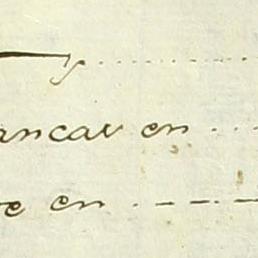 ancar en ......
e en . - . - . -